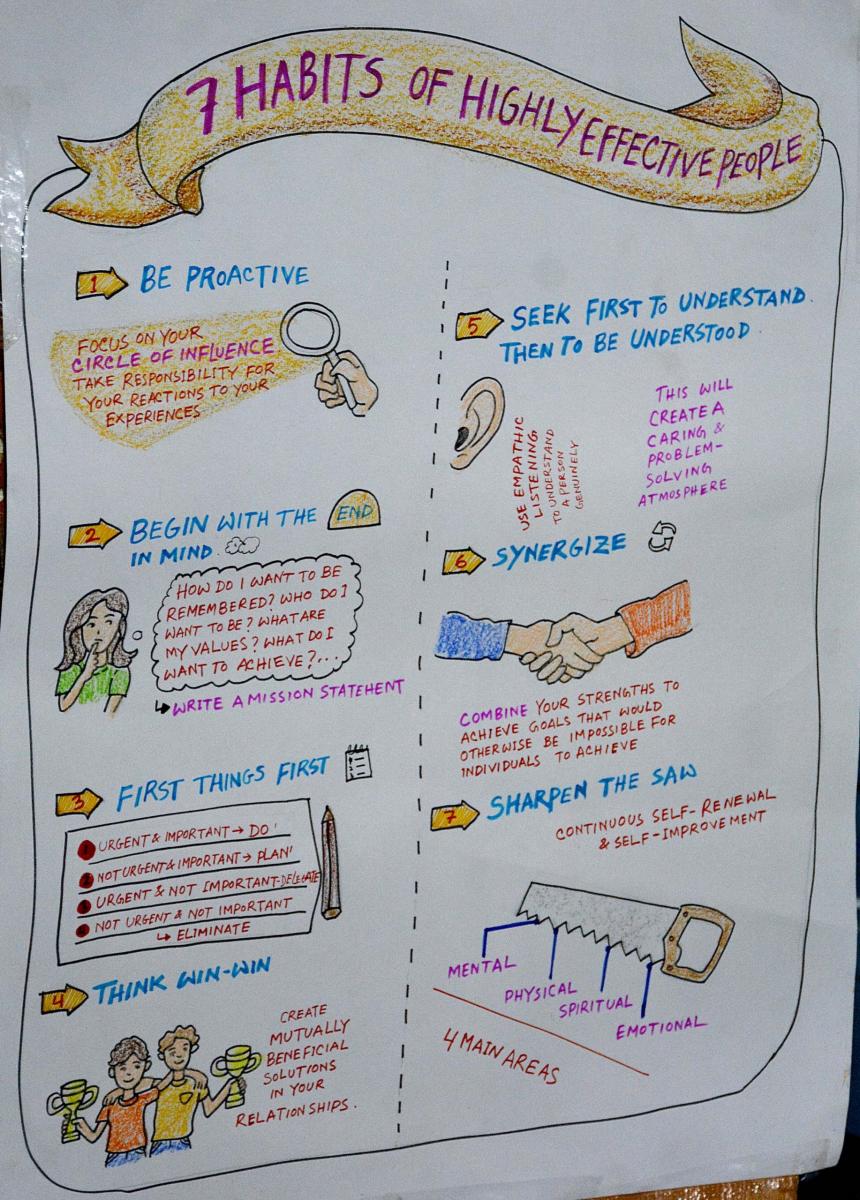 7 HABITS OF HIGHLY EFFECTIVE PEOPLE
1 BE PROACTIVE
FOCUS ON YOUR
CIRCLE OF INFLUENCE
TAKE RESPONSIBILITY FOR
YOUR REACTIONS TO YOUR
EXPERIENCES
2 BEGIN WITH THE END
IN MIND
HOW DO I WANT TO BE
REMEMBERED? WHO DO I
WANT TO BE? WHAT ARE
MY VALUES? WHAT DO I
WANT TO ACHIEVE?...
WRITE A MISSION STATEMENT
3 FIRST THINGS FIRST
1 URGENT & IMPORTANT → DO'
2 NOT URGENT & IMPORTANT → PLAN'
3 URGENT & NOT IMPORTANT-DELEGATE
4 NOT URGENT & NOT IMPORTANT
↳ ELIMINATE
4 THINK WIN-WIN
CREATE
MUTUALLY
BENEFICIAL
SOLUTIONS
IN YOUR
RELATIONSHIPS.
5 SEEK FIRST TO UNDERSTAND.
THEN TO BE UNDERSTOOD.
USE EMPATHIC
LISTENING
TO UNDERSTAND
A PERSON
GENUINELY
THIS WILL
CREATE A
CARING &
PROBLEM-
SOLVING
ATMOSPHERE
6 SYNERGIZE
COMBINE YOUR STRENGTHS TO
ACHIEVE GOALS THAT WOULD
OTHERWISE BE IMPOSSIBLE FOR
INDIVIDUALS TO ACHIEVE
7 SHARPEN THE SAW
CONTINUOUS SELF-RENEWAL
& SELF-IMPROVEMENT
MENTAL
PHYSICAL
SPIRITUAL
EMOTIONAL
4 MAIN AREAS